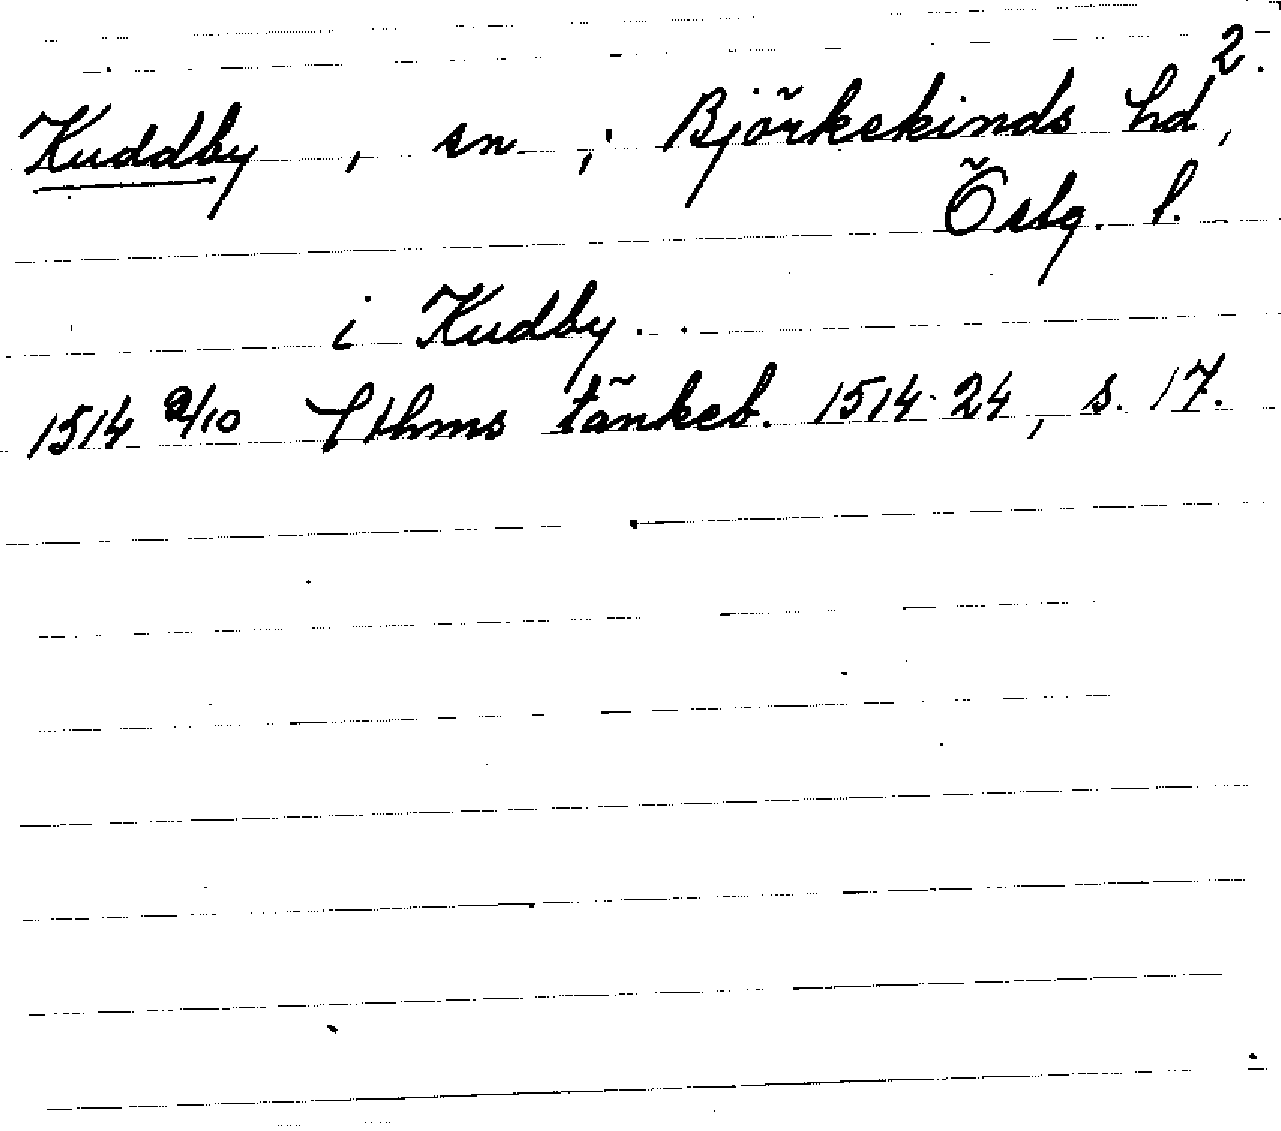 2.
Kuddby, sn, Björkekinds hd,
Östg. l.
i Kudby..
1514 9/10 Sthms tänkeb. 1514-24, s. 17.